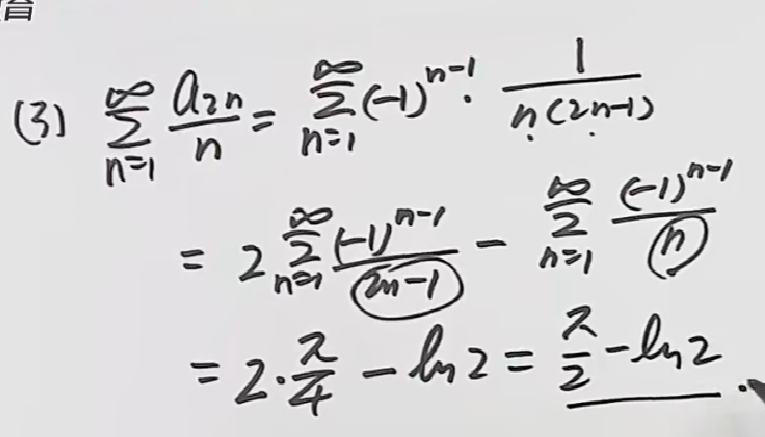 育
(3) \sum_{n=1}^{\infty} \frac{a_{2n}}{n} = \sum_{n=1}^{\infty} (-1)^{n-1} \cdot \frac{1}{n(2n-1)}
= 2 \sum_{n=1}^{\infty} \frac{(-1)^{n-1}}{2n-1} - \sum_{n=1}^{\infty} \frac{(-1)^{n-1}}{n}
= 2 \cdot \frac{\pi}{4} - \ln 2 = \frac{\pi}{2} - \ln 2.